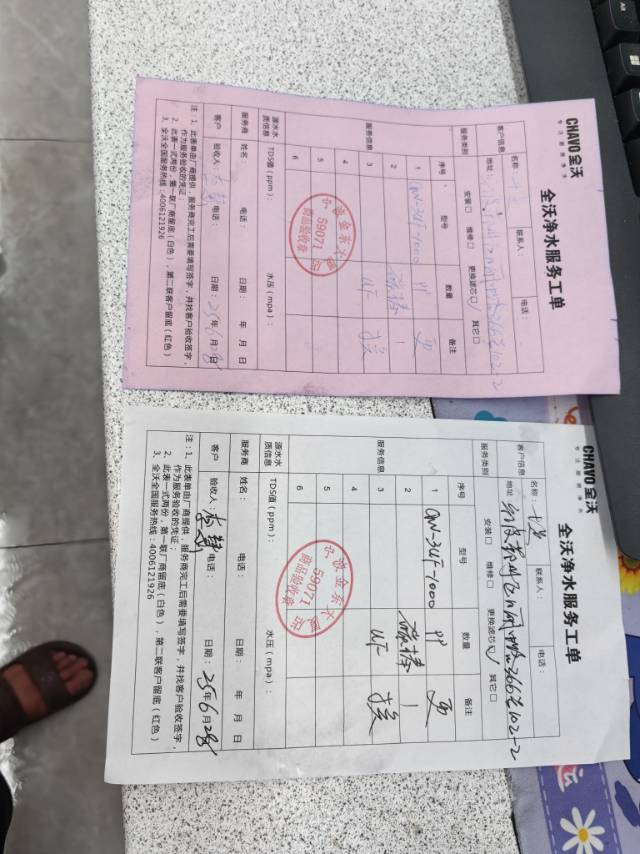 CHAVO全沃
专注健康净水
全沃净水服务工单
客户信息 名称： 联系人： 电话：
地址：
服务类别 安装□ 维修□ 更换滤芯☑ 其它□
服务信息 序号 型号 数量 备注
1 QW-3UF-1000 PP 更
2 碳棒 1
3 UF 换
4
5
6
59071
商品验收章
源水水质信息 TDS值（ppm）： 水压（mpa）：
服务商 姓名： 电话： 年 月 日
客户 验收人： 电话： 日期：25年6月28日
注：1、此表单由厂商提供，服务商完工后需要填写签字，并找客户验收签字，
作为服务验收的凭证；
2、此表一式两份，第一联厂商留底（白色），第二联客户留底（红色）
3、全沃全国服务热线：4006121926
CHAVO全沃
专注健康净水
全沃净水服务工单
客户信息 名称： 联系人： 电话：
地址： 366号102-2
服务类别 安装□ 维修□ 更换滤芯☑ 其它□
服务信息 序号 型号 数量 备注
1 QW-3UF-1000 PP 更
2 碳棒 1
3 UF 换
4
5
6
59071
商品验收章
源水水质信息 TDS值（ppm）： 水压（mpa）：
服务商 姓名： 电话： 日期： 年 月 日
客户 验收人： 电话： 日期：25年6月28日
注：1、此表单由厂商提供，服务商完工后需要填写签字，并找客户验收签字，
作为服务验收的凭证；
2、此表一式两份，第一联厂商留底（白色），第二联客户留底（红色）
3、全沃全国服务热线：4006121926